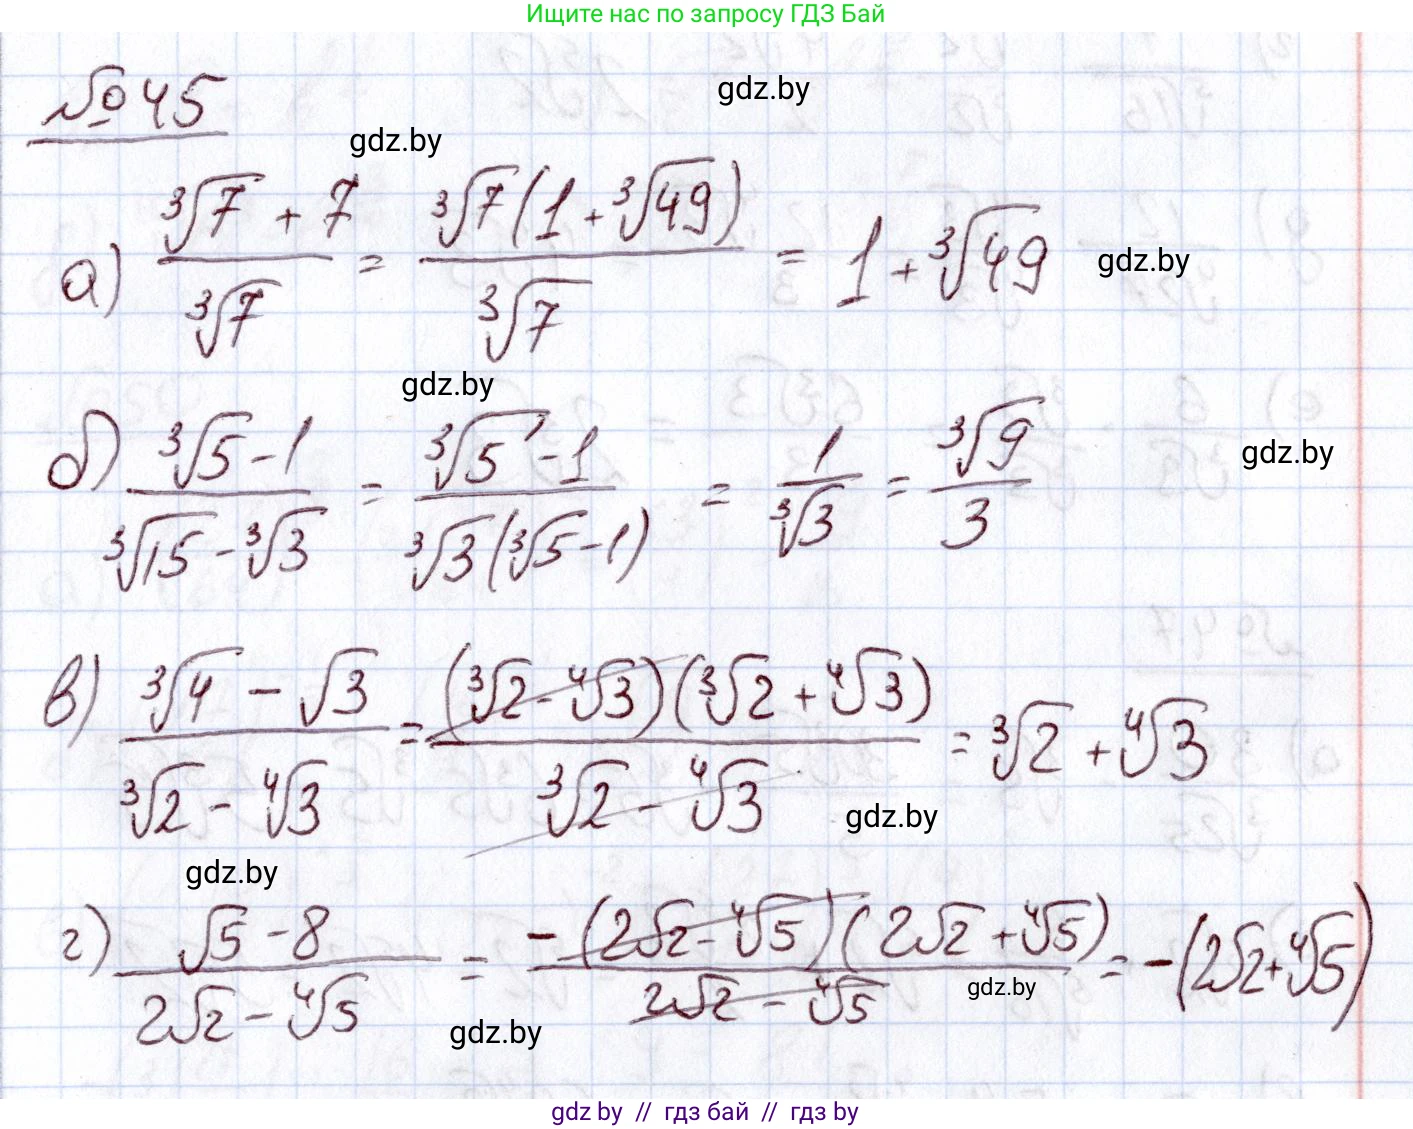 Ищите нас по запросу ГДЗ Бай
№ 45
gdz.by
gdz.by
а) (∛7 + 7)/∛7 = ∛7(1 + ∛49)/∛7 = 1 + ∛49
gdz.by
gdz.by
б) (∛5 - 1)/(∛15 - ∛3) = (∛5 - 1)/(∛3(∛5 - 1)) = 1/∛3 = ∛9/3
gdz.by
в) (∛4 - √3)/(∛2 - ∜3) = (∛2 - ∜3)(∛2 + ∜3)/(∛2 - ∜3) = ∛2 + ∜3
gdz.by
gdz.by
г) (√5 - 8)/(2√2 - ∜5) = -(2√2 - ∜5)(2√2 + ∜5)/(2√2 - ∜5) = -(2√2 + ∜5)
gdz.by
gdz.by
gdz by // гдз бай // гдз by